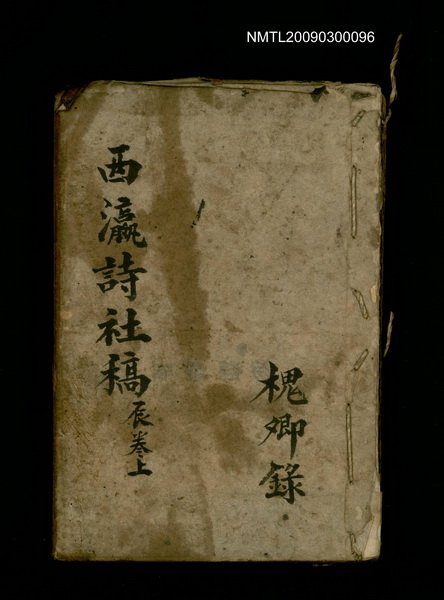 NMTL20090300096
西瀛詩社稿辰卷上
槐卿錄